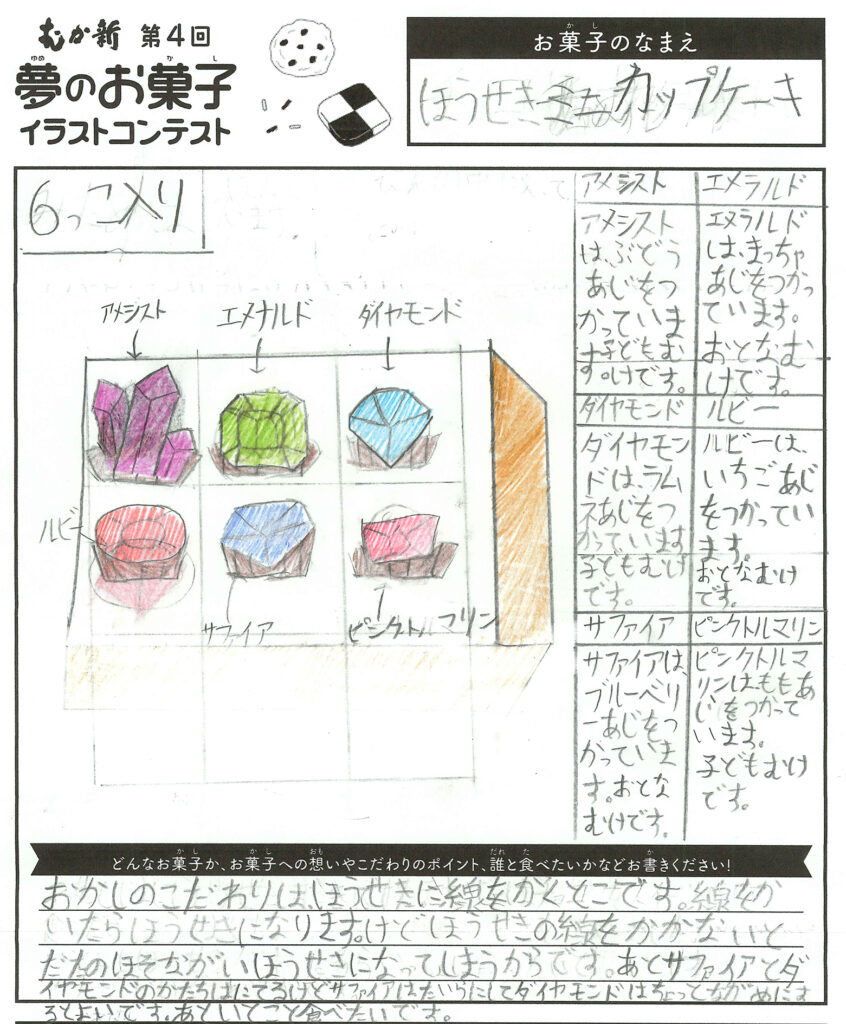 むか新 第4回
ゆめ か し
夢のお菓子
イラストコンテスト
か し
お菓子のなまえ
ほうせきミニカップケーキ
6っこ入り
アメジスト
エメナルド
ダイヤモンド
ルビー
サファイア
ピンクトルマリン
アメシスト
アメシスト
は、ぶどう
あじをつ
かっていま
す子どもむ
。けです。
エメラルド
エメラルド
は、まっちゃ
あじをつかっ
ています。
おとなむ
けです。
ダイヤモンド
ダイヤモン
ドは、ラム
ネあじをつ
かっています
子どもむけ
です。
ルビー
ルビーは、
いちごあじ
をつかってい
ます。
おとなむけ
です。
サファイア
サファイアは、
ブルーベリ
ーあじをつ
かっていま
す。おとな
むけです。
ピンクトルマリン
ピンクトルマ
リンは、ももあ
じをつかって
います。
子どもむけ
です。
か し か し おも だれ た
どんなお菓子か、お菓子への想いやこだわりのポイント、誰と食べたいかなどお書きください!
おかしのこだわりは、ほうせきに線をかくとこです。線をか
いたらほうせきになります。けどほうせきの線をかかないと
だたのほそながいほうせきになってしまうからです。あとサファイアとダ
イヤモンドのかたちはにてるけどサファイアは、たいらにしてダイヤモンドはちょっとながめにす
るとよいです。あといとこと食べたいです。